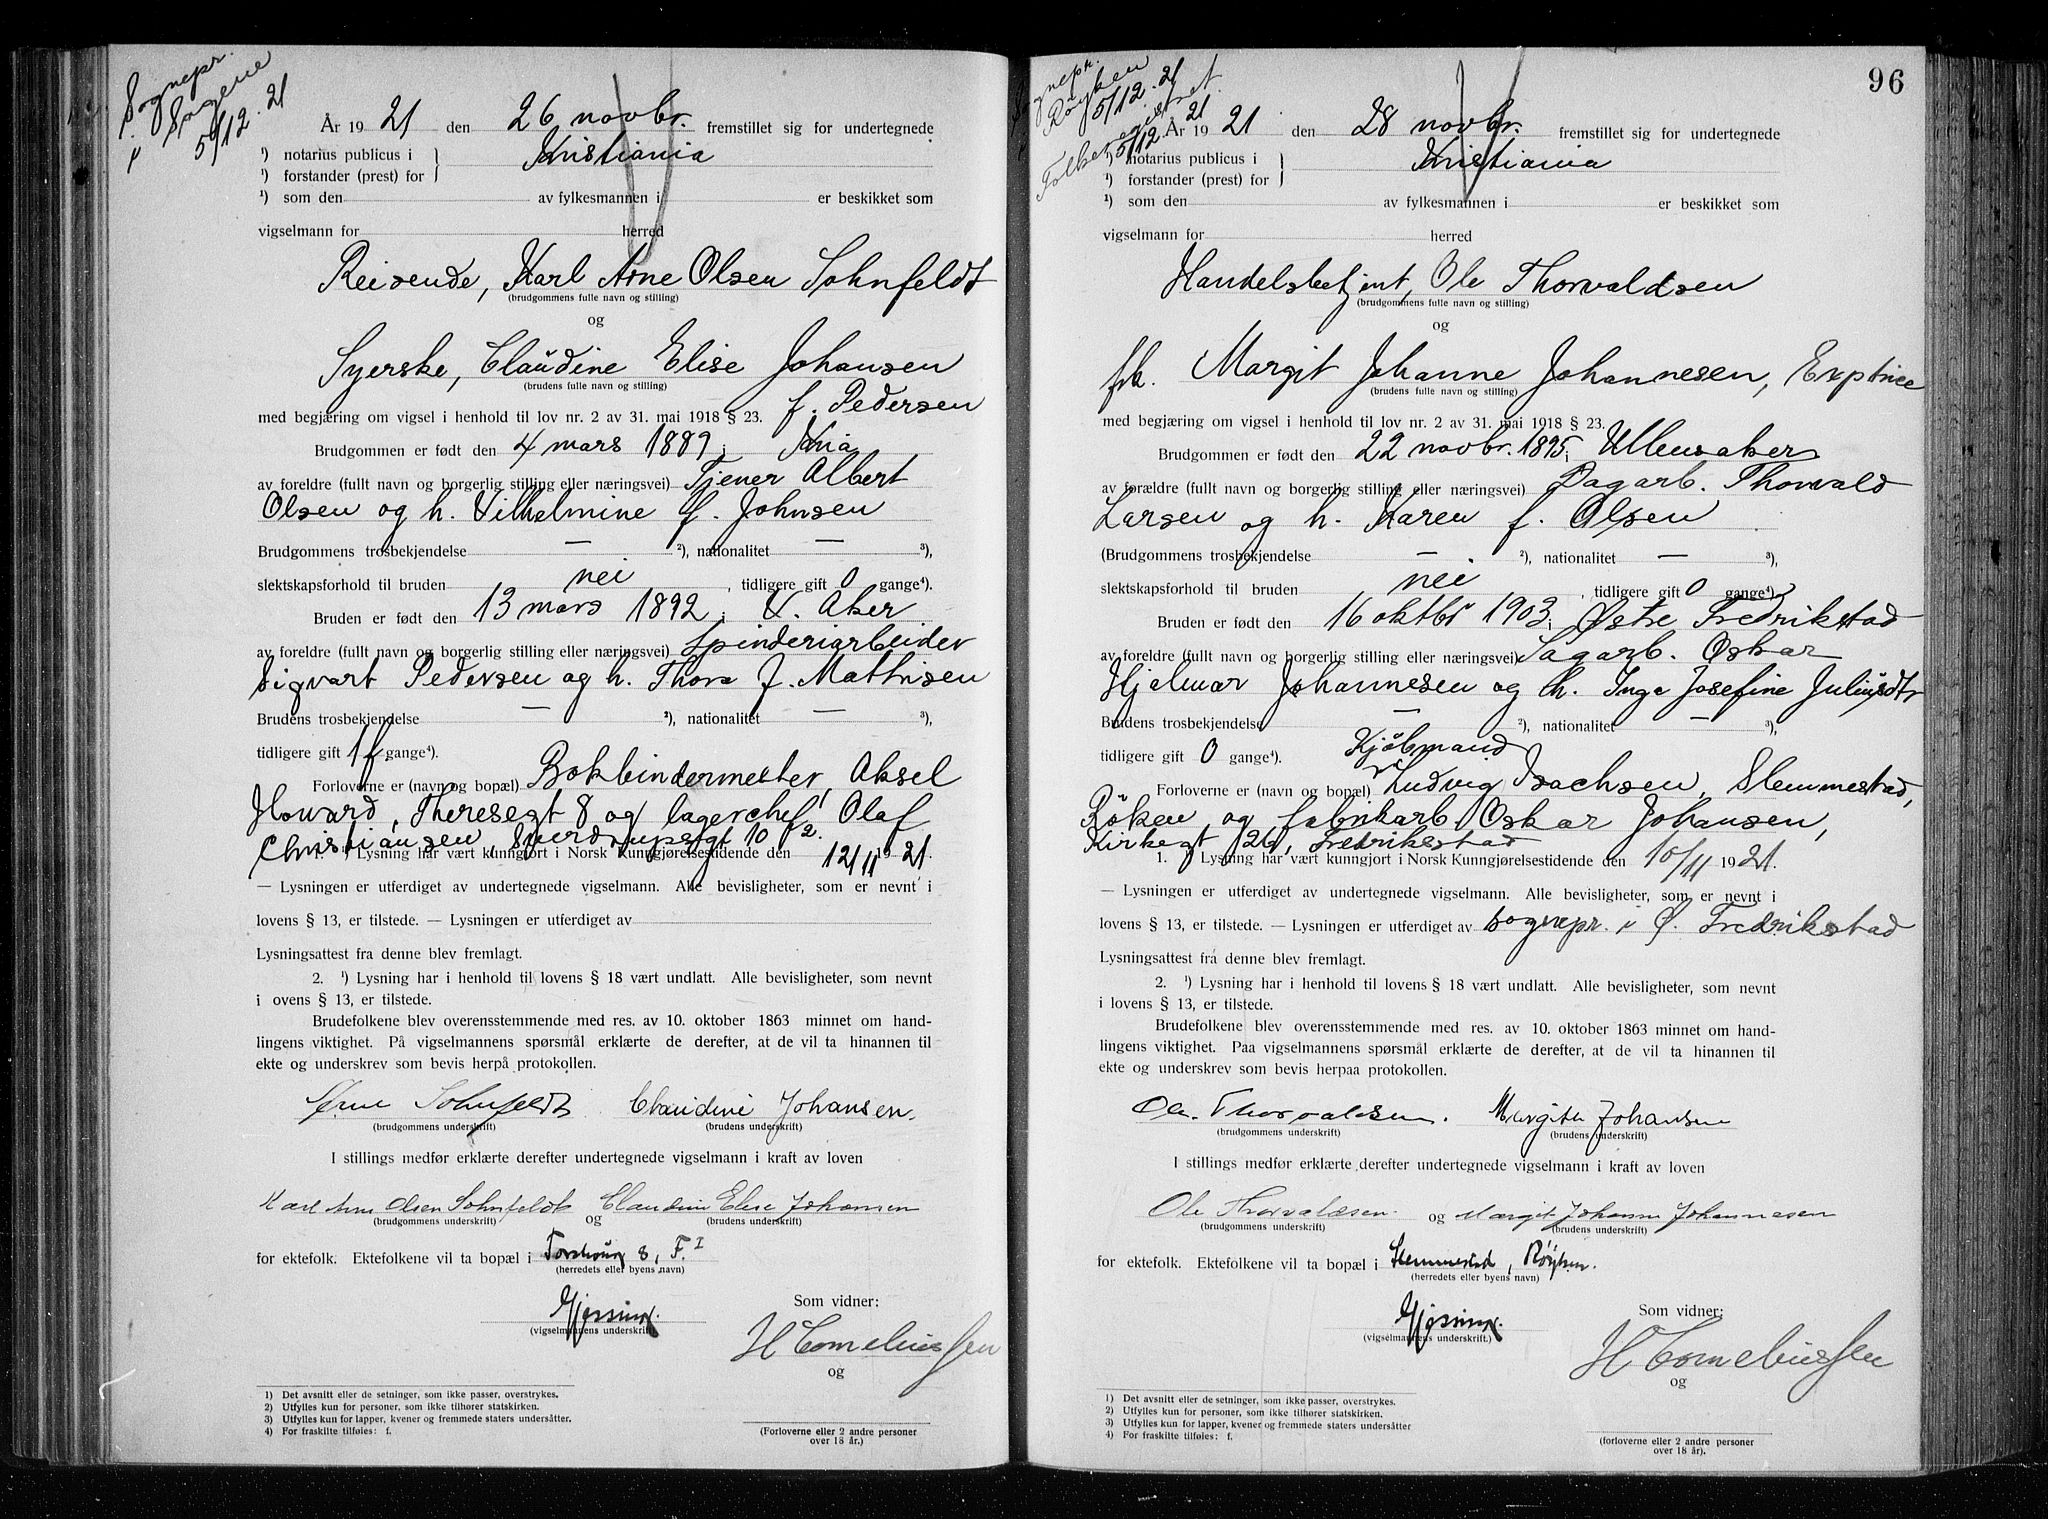 Sognepr.
i Sagene
5/12. 21
År 1921 den 26 novbr. fremstillet sig for undertegnede
¹) notarius publicus i Kristiania
¹) forstander (prest) for
¹) som den av fylkesmannen i er beskikket som
vigselmann for herred
Reisende, Karl Arne Olsen Sohnfeldt
(brudgommens fulle navn og stilling)
og
Syerske, Claudine Elise Johansen
(brudens fulle navn og stilling)
f. Pedersen
med begjæring om vigsel i henhold til lov nr. 2 av 31. mai 1918 § 23.
Brudgommen er født den 4 mars 1889 i Kria
av foreldre (fullt navn og borgerlig stilling eller næringsvei) Tjener Albert
Olsen og h. Vilhelmine f. Johnsen
Brudgommens trosbekjendelse — ²), nationalitet — ³),
slektskapsforhold til bruden nei, tidligere gift 0 gange⁴).
Bruden er født den 13 mars 1892 i V. Aker
av foreldre (fullt navn og borgerlig stilling eller næringsvei) Spinderiarbeider
Sigvart Pedersen og h. Thora f. Mathisen
Brudens trosbekjendelse — ²), nationalitet — ³),
tidligere gift 1 f. gange⁴).
Forloverne er (navn og bopæl) Bokbindermester, Aksel
Howard, Theresegt 8 og lagerchef Olaf
Christiansen, Sverdrupsgt 10
1. ¹) Lysning har vært kunngjort i Norsk Kunngjørelsestidende den 12/11 1921.
— Lysningen er utferdiget av undertegnede vigselmann. Alle bevisligheter, som er nevnt i
lovens § 13, er tilstede. — Lysningen er utferdiget av
Lysningsattest fra denne blev fremlagt.
2. ¹) Lysning har i henhold til lovens § 18 vært undlatt. Alle bevisligheter, som nevnt
i ovens § 13, er tilstede.
Brudefolkene blev overensstemmende med res. av 10. oktober 1863 minnet om hand-
lingens viktighet. På vigselmannens spørsmål erklærte de derefter, at de vil ta hinannen til
ekte og underskrev som bevis herpå protokollen.
Arne Sohnfeldt Claudine Johansen.
(brudgommens underskrift) (brudens underskrift)
I stillings medfør erklærte derefter undertegnede vigselmann i kraft av loven
Karl Arne Olsen Sohnfeldt og Claudine Elise Johansen
(brudgommens underskrift) (brudens underskrift)
for ektefolk. Ektefolkene vil ta bopæl i 8, F. I
(herredets eller byens navn)
Gjessing
(vigselmannens underskrift)
Som vidner:
H Corneliussen
og
(Forloverne eller 2 andre personer
over 18 år.)
1) Det avsnitt eller de setninger, som ikke passer, overstrykes.
2) Utfylles kun for personer, som ikke tilhører statskirken.
3) Utfylles kun for lapper, kvener og fremmede staters undersåtter.
4) For fraskilte tilføies: f.
96
Sognepr.
Røyken
5/12. 21
Folkeregistret.
5/12 21
År 1921 den 28 novbr. fremstillet sig for undertegnede
¹) notarius publicus i Kristiania
¹) forstander (prest) for
¹) som den av fylkesmannen i er beskikket som
vigselmann for herred
Handelsbetjent, Ole Thorvaldsen
(brudgommens fulle navn og stilling)
og
frk. Margit Johanne Johannesen, Exptrice
(brudens fulle navn og stilling)
med begjæring om vigsel i henhold til lov nr. 2 av 31. mai 1918 § 23.
Brudgommen er født den 22 novbr. 1895 i Ullensaker
av forældre (fullt navn og borgerlig stilling eller næringsvei) Dagarb. Thorvald
Larsen og h. Karen f. Olsen
(Brudgommens trosbekjendelse — ²), nationalitet — ³),
slektskapsforhold til bruden nei, tidligere gift 0 gange⁴)
Bruden er født den 16 oktbr 1903 i Østre Fredrikstad
av foreldre (fullt navn og borgerlig stilling eller næringsvei) Sagarb. Oskar
Hjalmar Johannesen og h. Inga Josefine Juliusdtr
Brudens trosbekjendelse — ²), nationalitet — ³),
tidligere gift 0 gange⁴). Kjøbmand
Forloverne er (navn og bopæl) Ludvig Isachsen, Slemmestad,
Røken, og fabrikarb. Oskar Johansen,
Kirkegt 26, Fredrikstad
1. ¹) Lysning har vært kunngjort i Norsk Kunngjørelsestidende den 10/11 1921.
— Lysningen er utferdiget av undertegnede vigselmann. Alle bevisligheter, som er nevnt i
lovens § 13, er tilstede. — Lysningen er utferdiget av sognepr. i Ø. Fredrikstad
Lysningsattest frå denne blev fremlagt.
2. ¹) Lysning har i henhold til lovens § 18 vært undlatt. Alle bevisligheter, som nevnt
i lovens § 13, er tilstede.
Brudefolkene blev overensstemmende med res. av 10. oktober 1863 minnet om hand-
lingens viktighet. Paa vigselmannens spørsmål erklærte de derefter, at de vil ta hinannen til
ekte og underskrev som bevis herpaa protokollen.
Ole Thorvaldsen. Margith Johansen
(brudgommens underskrift) (brudens underskrift)
I stillings medfør erklærte derefter undertegnede vigselmann i kraft av loven
Ole Thorvaldsen og Margit Johanne Johannesen
(brudgommens underskrift) (brudens underskrift)
for ektefolk. Ektefolkene vil ta bopæl i Slemmestad, Røyken.
(herredets eller byens navn)
Gjessing.
(vigselmannens underskrift.)
Som vidner:
H Corneliussen
og
(forloverne eller 2 andre personer
over 18 år).
1) Det avsnitt eller de setninger, som ikke passer, overstrykes.
2) Utfylles kun for personer, som ikke tilhører statskirken.
3) Utfylles kun for lapper, kvener og fremmede staters undersåtter
4) For fraskilte tilføies: f.